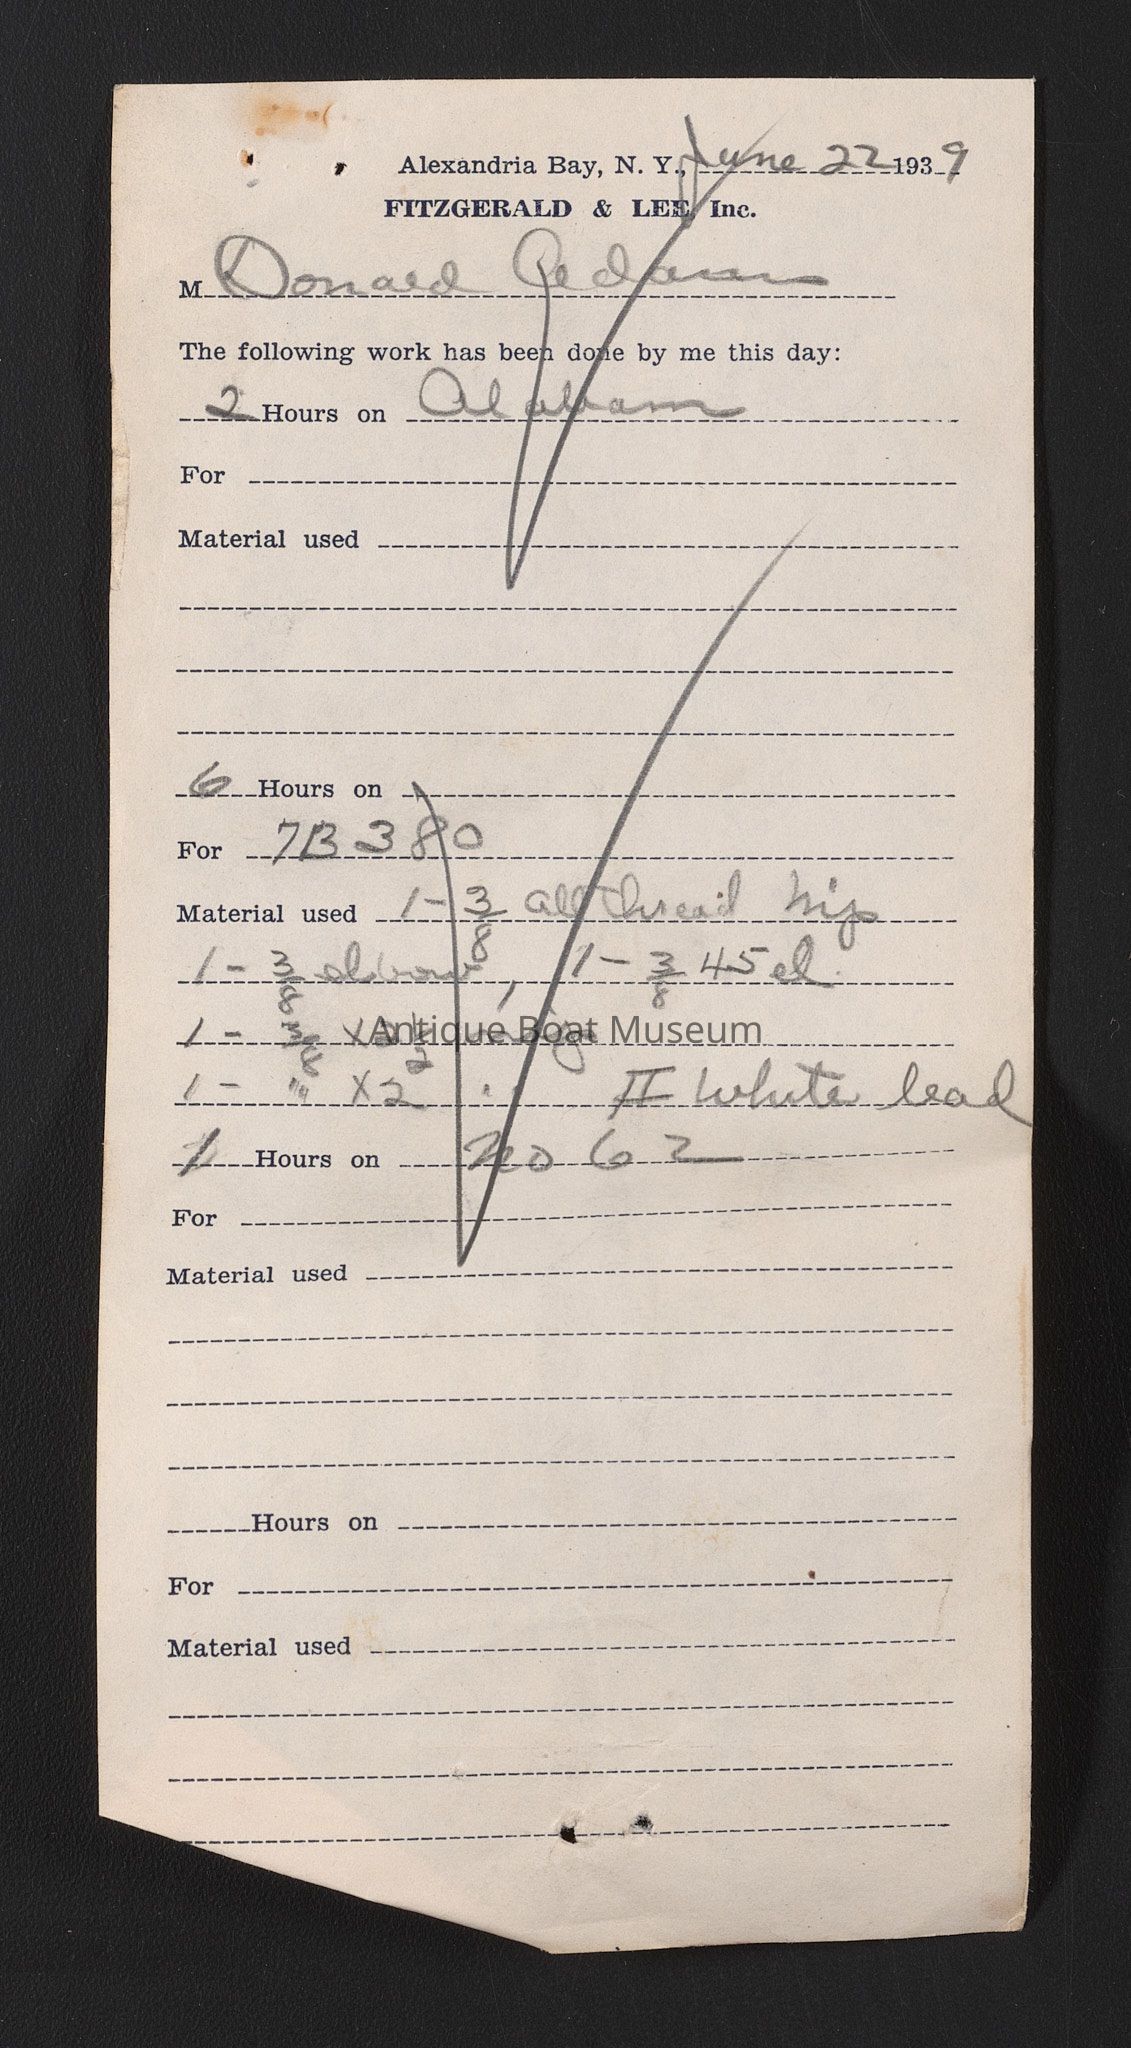 Alexandria Bay, N. Y., June 22 1939
FITZGERALD & LEE, Inc.
M Donald
The following work has been done by me this day:
2 Hours on Alabam
For
Material used
6 Hours on
For 7B 380
Material used 1 - 3/8 all thread nip
1 - 3/8 elbow, 1 - 3/8 45 el.
1 - 3/8 x 2 1/2 nip
Antique Boat Museum
1 - " x 2 " II White lead
1 Hours on No 62
For
Material used
Hours on
For
Material used